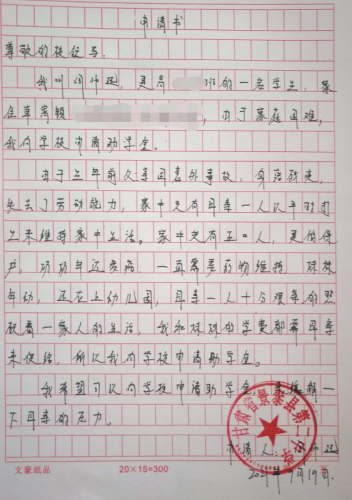 申请书
尊敬的校领导:
我叫闫帅廷,是高 班的一名学生,家
住草窝镇 ,由于家庭困难,
我向学校申请助学金。
由于三年前父亲因意外事故,身落残疾,
失去了劳动能力,家中只有母亲一人以平时打
工来维持家中生活。家中共有五口人,是低保
户,奶奶年迈多病,一直需要药物维持,妹妹
年幼,还在上幼儿园,母亲一人十分艰辛的照
顾着一家人的生活,我和妹妹的学费都需母亲
来供给,所以我向学校申请助学金。
我希望可以向学校申请助学金,来缓解一
下母亲的压力。
甘肃省景泰县第一中学
申请人:
月19日
文豪纸品 20×15=300